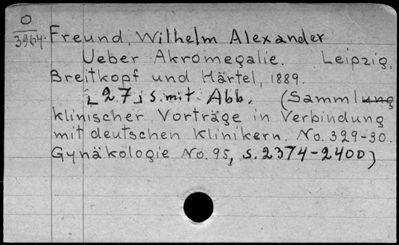 O
3964. Freund, Wilhelm Alexander
Ueber Akromegalie. Leipzig,
Breitkopf und Härtel, 1889.
[27] S. mit Abb. (Sammlung
klinischer Vorträge in Verbindung
mit deutschen Klinikern. No. 329-30.
Gynäkologie No. 95, S. 2374-2400)